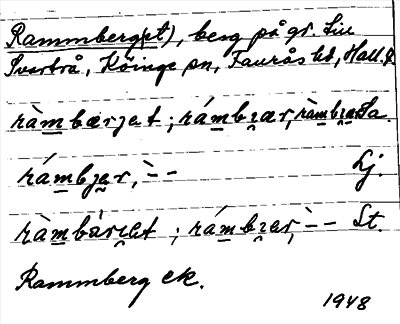 Rammberg(et), berg på gr. Liu
Svartrå, Köinge sn, Faurås hd, Hall.
ràmbærjet; rámbær, ràmbær Sa.
rámbjer, `-- Lj.
ràmbàrjet; rámbær, `-- St.
Rammberg ek.
1948